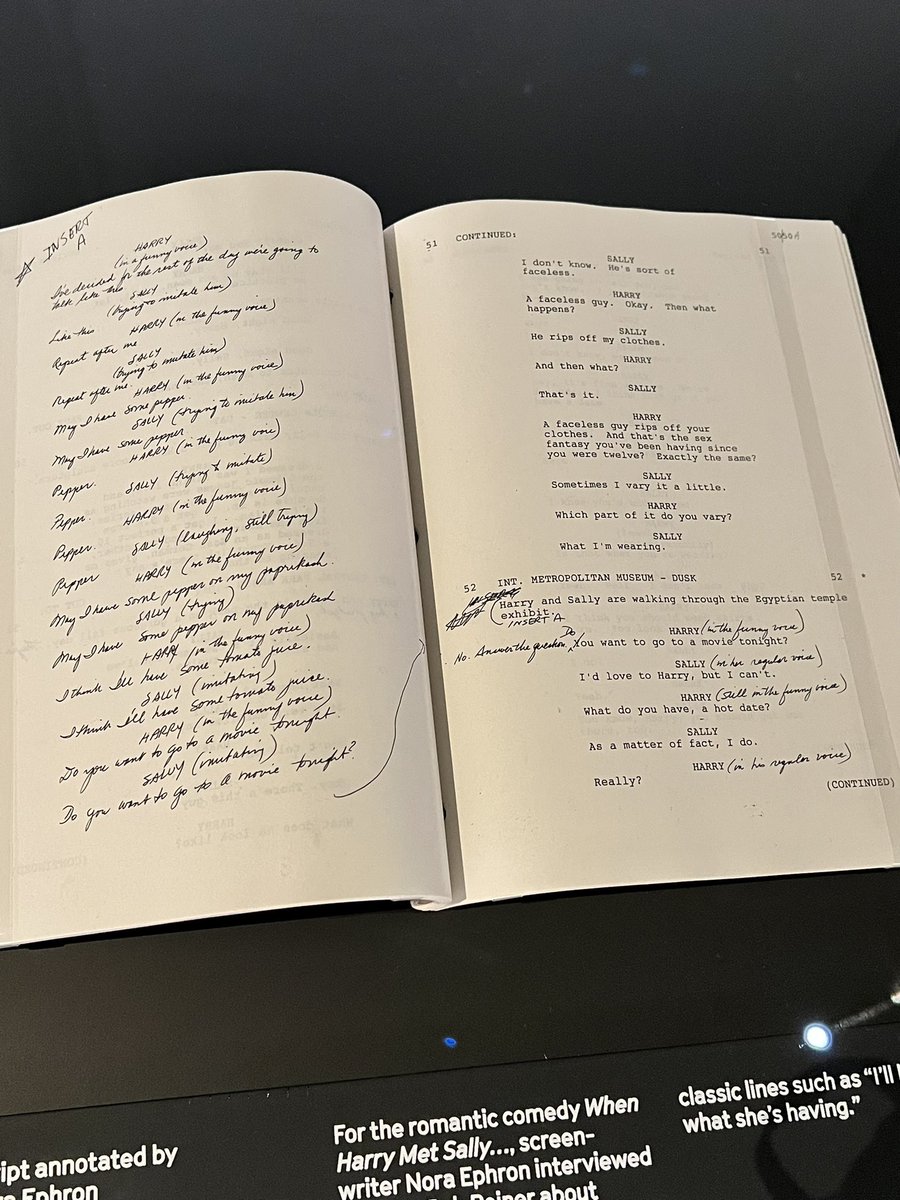 INSERT
A
HARRY
(in a funny voice)
I've decided for the rest of the day we're going to
talk like this
SALLY
(trying to imitate him)
Like this
HARRY (in the funny voice)
Repeat after me
SALLY
(trying to imitate him)
Repeat after me.
HARRY (in the funny voice)
May I have some pepper.
SALLY (trying to imitate him)
May I have some pepper
HARRY (in the funny voice)
Pepper.
SALLY (trying to imitate)
Pepper.
HARRY (in the funny voice)
Pepper.
SALLY (laughing, still trying)
Pepper
HARRY (in the funny voice)
May I have some pepper on my paprikash.
SALLY (trying)
May I have some pepper on my paprikash
HARRY (in the funny voice)
I think I'll have some tomato juice.
SALLY (imitating)
I think I'll have some tomato juice.
HARRY (in the funny voice)
Do you want to go to a movie tonight.
SALLY (imitating)
Do you want to go to a movie tonight?
51 CONTINUED:
51
SALLY
I don't know. He's sort of
faceless.
HARRY
A faceless guy. Okay. Then what
happens?
SALLY
He rips off my clothes.
HARRY
And then what?
SALLY
That's it.
HARRY
A faceless guy rips off your
clothes. And that's the sex
fantasy you've been having since
you were twelve? Exactly the same?
SALLY
Sometimes I vary it a little.
HARRY
Which part of it do you vary?
SALLY
What I'm wearing.
52 INT. METROPOLITAN MUSEUM - DUSK 52
Harry and Sally are walking through the Egyptian temple
exhibit.
INSERT A
HARRY (in the funny voice)
No. Answer the question. Do You want to go to a movie tonight?
SALLY (in her regular voice)
I'd love to Harry, but I can't.
HARRY (still in the funny voice)
What do you have, a hot date?
SALLY
As a matter of fact, I do.
HARRY (in his regular voice)
Really?
(CONTINUED)
annotated by
Ephron
For the romantic comedy When
Harry Met Sally..., screen-
writer Nora Ephron interviewed
Reiner about
classic lines such as "I'll
what she's having."